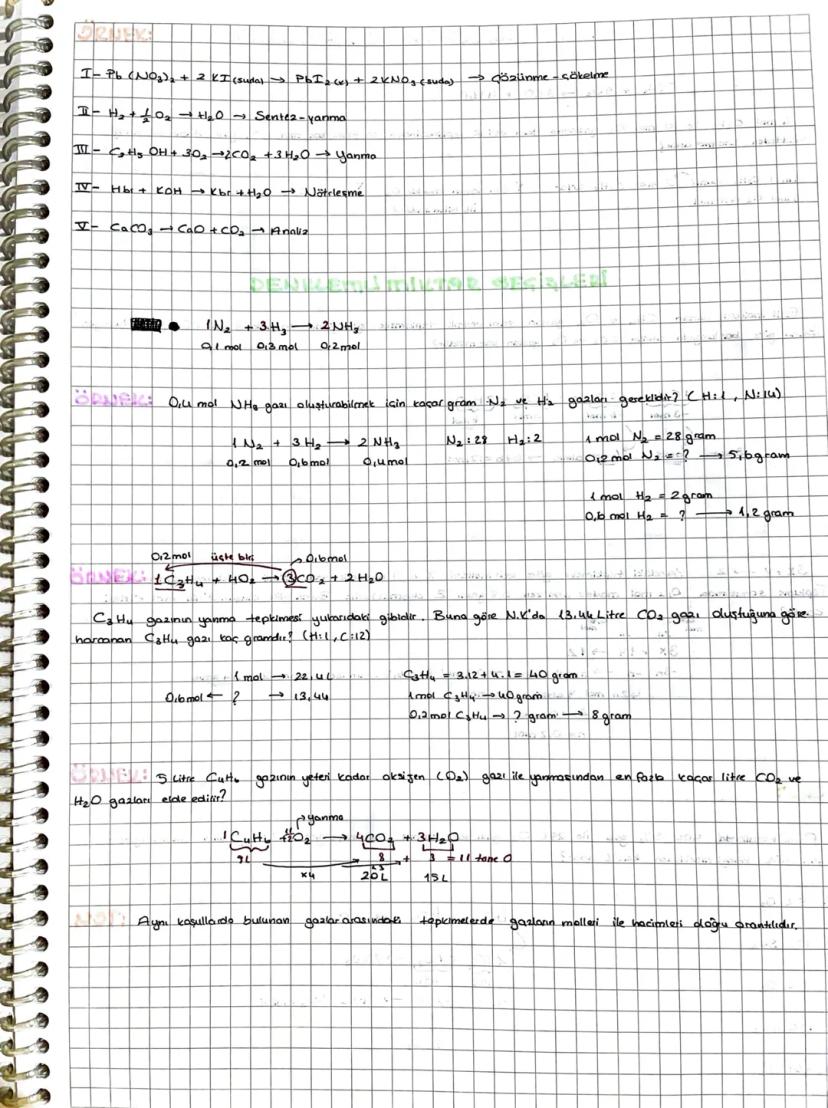 ÖRNEK:
I- Pb(NO₃)₂ + 2 KI(suda) → PbI₂(k) + 2KNO₃(suda) → Çözünme-Çökelme
II- H₂ + ½ O₂ → H₂O → Sentez-yanma
III- C₂H₅OH + 3O₂ → 2CO₂ + 3H₂O → Yanma
IV- Hbr + KOH → Kbr + H₂O → Nötrleşme
V- CaCO₃ → CaO + CO₂ → Analiz
DENKLEMLİ MİKTAR GEÇİŞLERİ
1N₂ + 3H₂ → 2NH₃
0,1 mol 0,3 mol 0,2 mol
ÖRNEK: 0,4 mol NH₃ gazı oluşturabilmek için kaçar gram N₂ ve H₂ gazları gereklidir? (H:1, N:14)
1 N₂ + 3 H₂ → 2 NH₃ N₂:28 H₂:2 1 mol N₂ = 28 gram
0,2 mol 0,6 mol 0,4 mol 0,2 mol N₂ = ? → 5,6 gram
1 mol H₂ = 2 gram
0,6 mol H₂ = ? → 1,2 gram
0,2 mol üçte biri 0,6 mol
ÖRNEK: 1C₃H₄ + 4O₂ → 3CO₂ + 2H₂O
C₃H₄ gazının yanma tepkimesi yukarıdaki gibidir. Buna göre N.K'da 13,44 Litre CO₂ gazı oluştuğuna göre
harcanan C₃H₄ gazı kaç gramdır? (H:1, C:12)
1 mol → 22,4 L C₃H₄ = 3.12 + 4.1 = 40 gram
0,6 mol ← ? → 13,44 1 mol C₃H₄ → 40 gram
0,2 mol C₃H₄ → ? gram → 8 gram
ÖRNEK: 5 Litre C₄H₆ gazının yeteri kadar oksijen (O₂) gazı ile yanmasından en fazla kaçar litre CO₂ ve
H₂O gazları elde edilir?
yanma
1C₄H₆ + 11/2 O₂ → 4CO₂ + 3H₂O
8 + 3 = 11 tane O
x4 20L 15L
NOT: Aynı koşullarda bulunan gazlar arasındaki tepkimelerde gazların molleri ile hacimleri doğru orantılıdır.